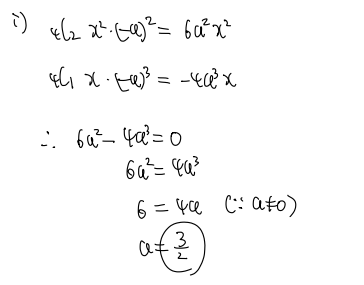 i) ₄C₂ x²·(-a)² = 6a²x²
₄C₁ x·(-a)³ = -4a³x
∴ 6a² - 4a³ = 0
6a² = 4a³
6 = 4a (∵ a≠0)
a = 3/2